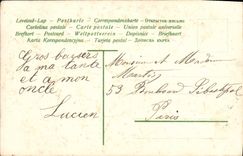 Levelező-Lap - Postkarte - Открытое письмо
Correspondenzkarte - Carte postale - Union postale universelle
Brefkort - Postkort - Weltpostverein - Dopisnice - Briefkaart
Karta Korespondencyjna - Tarjeta postal - Записнаѧ карта
Gros baisers
a ma tante
et a mon
oncle
Lucien
Monsieur et Madame
53 Boulevard Sébastopol
Paris